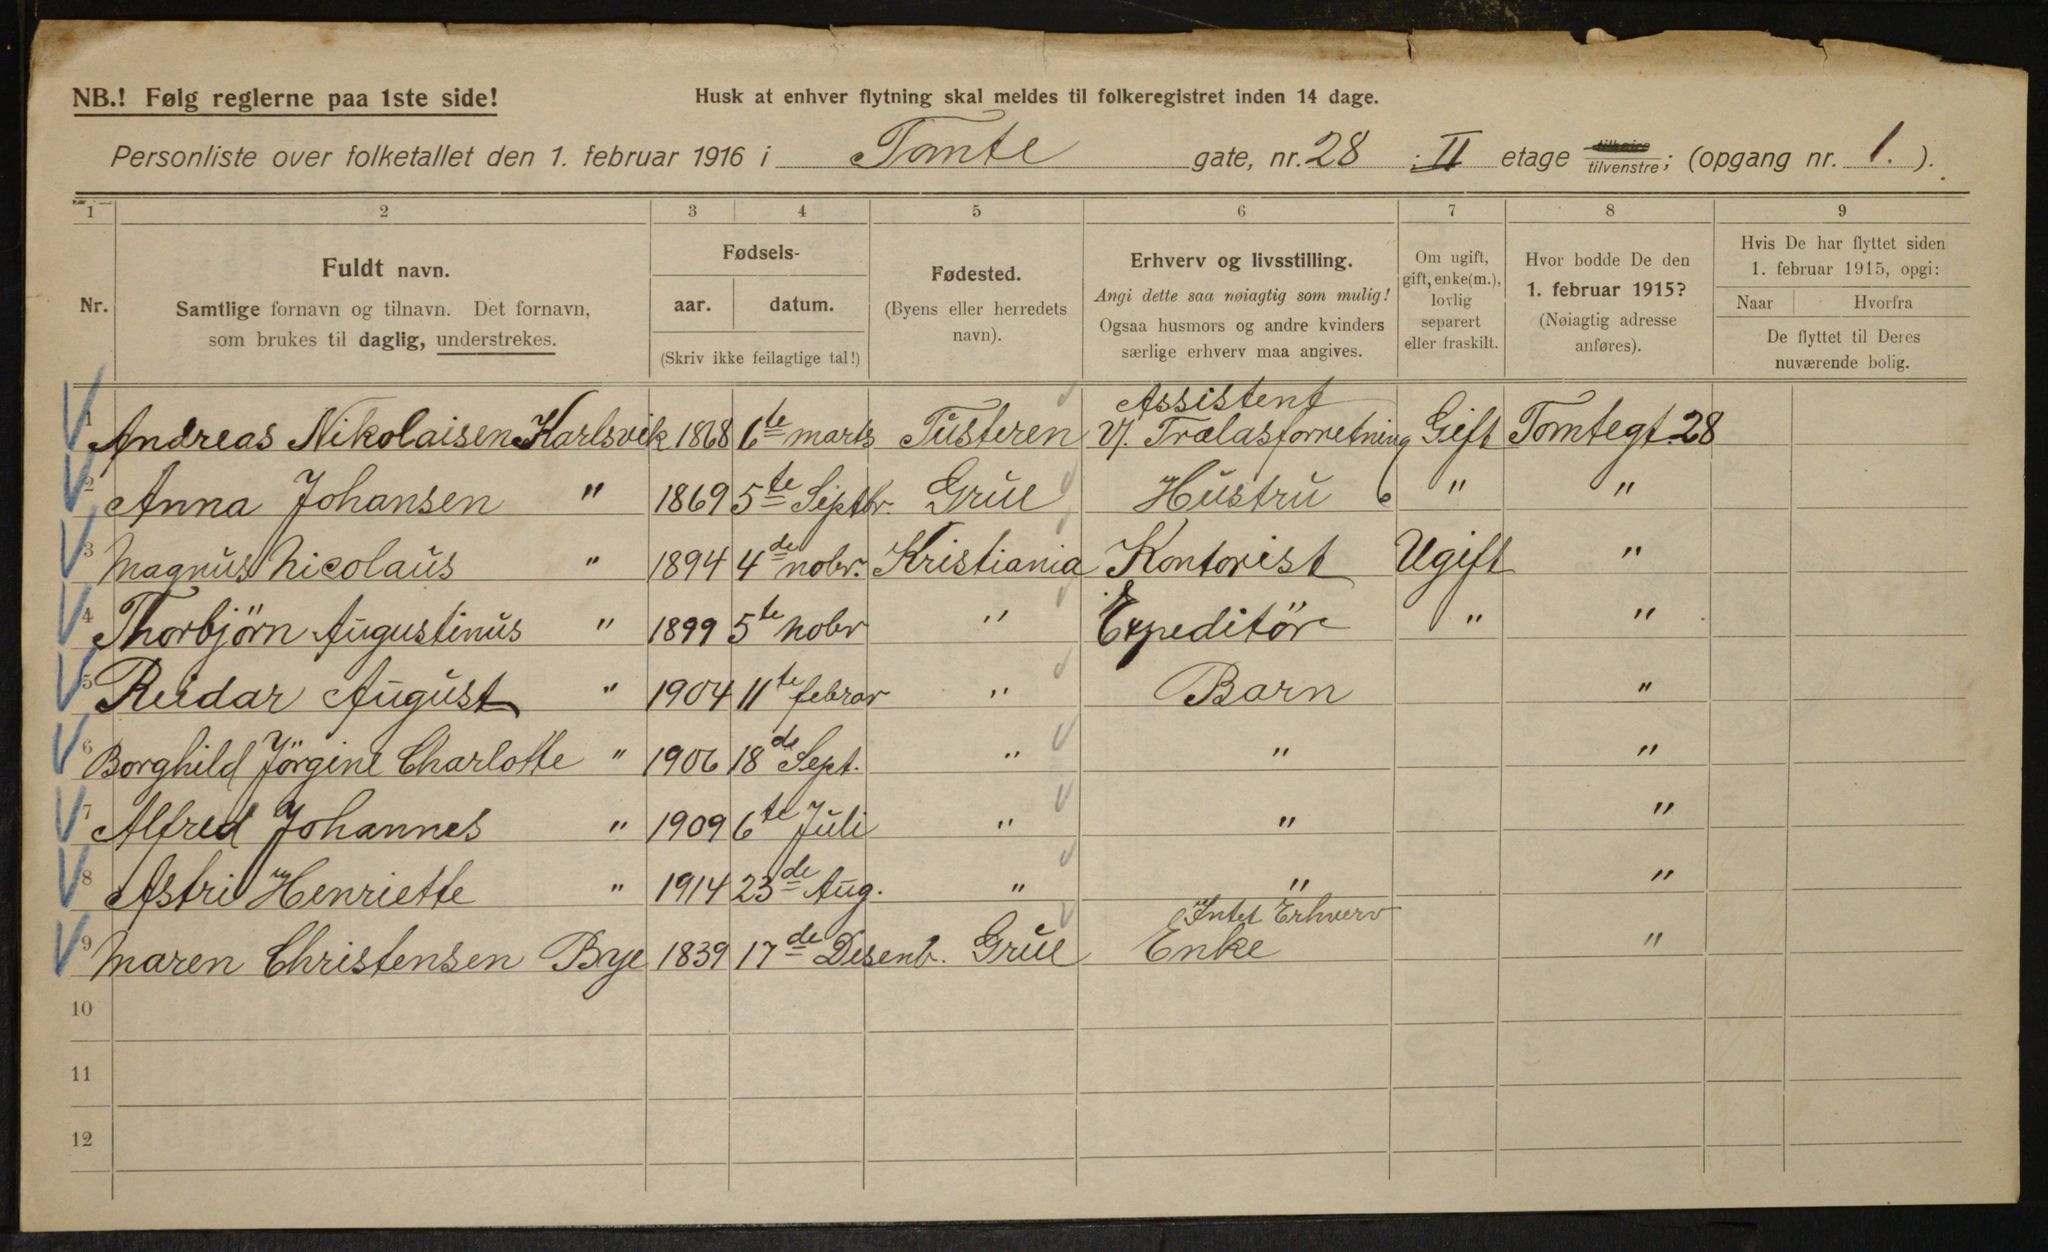 NB.! Følg reglerne paa 1ste side!
Husk at enhver flytning skal meldes til folkeregistret inden 14 dage.
Personliste over folketallet den 1. februar 1916 i Tomte gate, nr. 28 : II etage tilhøire tilvenstre; (opgang nr. 1. ).
1 2 3 4 5 6 7 8 9
Nr.
Fuldt navn.
Samtlige fornavn og tilnavn. Det fornavn,
som brukes til daglig, understrekes.
Fødsels-
aar. datum.
(Skriv ikke feilagtige tal!)
Fødested.
(Byens eller herredets
navn).
Erhverv og livsstilling.
Angi dette saa nøiagtig som mulig!
Ogsaa husmors og andre kvinders
særlige erhverv maa angives.
Om ugift,
gift, enke(m.),
lovlig
separert
eller fraskilt.
Hvor bodde De den
1. februar 1915?
(Nøiagtig adresse
anføres).
Hvis De har flyttet siden
1. februar 1915, opgi:
Naar Hvorfra
De flyttet til Deres
nuværende bolig.
Assistent
1 Andreas Nikolaisen Karlsvik 1868 6te marts Tüsteren V/. Trælasforretning Gift Tomtegt. 28
2 Anna Johansen " 1869 5te Septbr. Grue Hustru " "
3 Magnus Nicolaus " 1894 4de nobr. Kristiania Kontorist Ugift "
4 Thorbjörn Augustinus " 1899 5te nobr " Expeditör " "
5 Reidar August " 1904 11te febrar " Barn "
6 Borghild Jörgine Charlotte " 1906 18de Sept. " " "
7 Alfred Johannes " 1909 6te Juli " " "
8 Astri Henriette " 1914 23de Aug. " " "
Intet Erhverv
9 Maren Christensen Bye 1839 17de Desenb. Grue Enke "
10
11
12